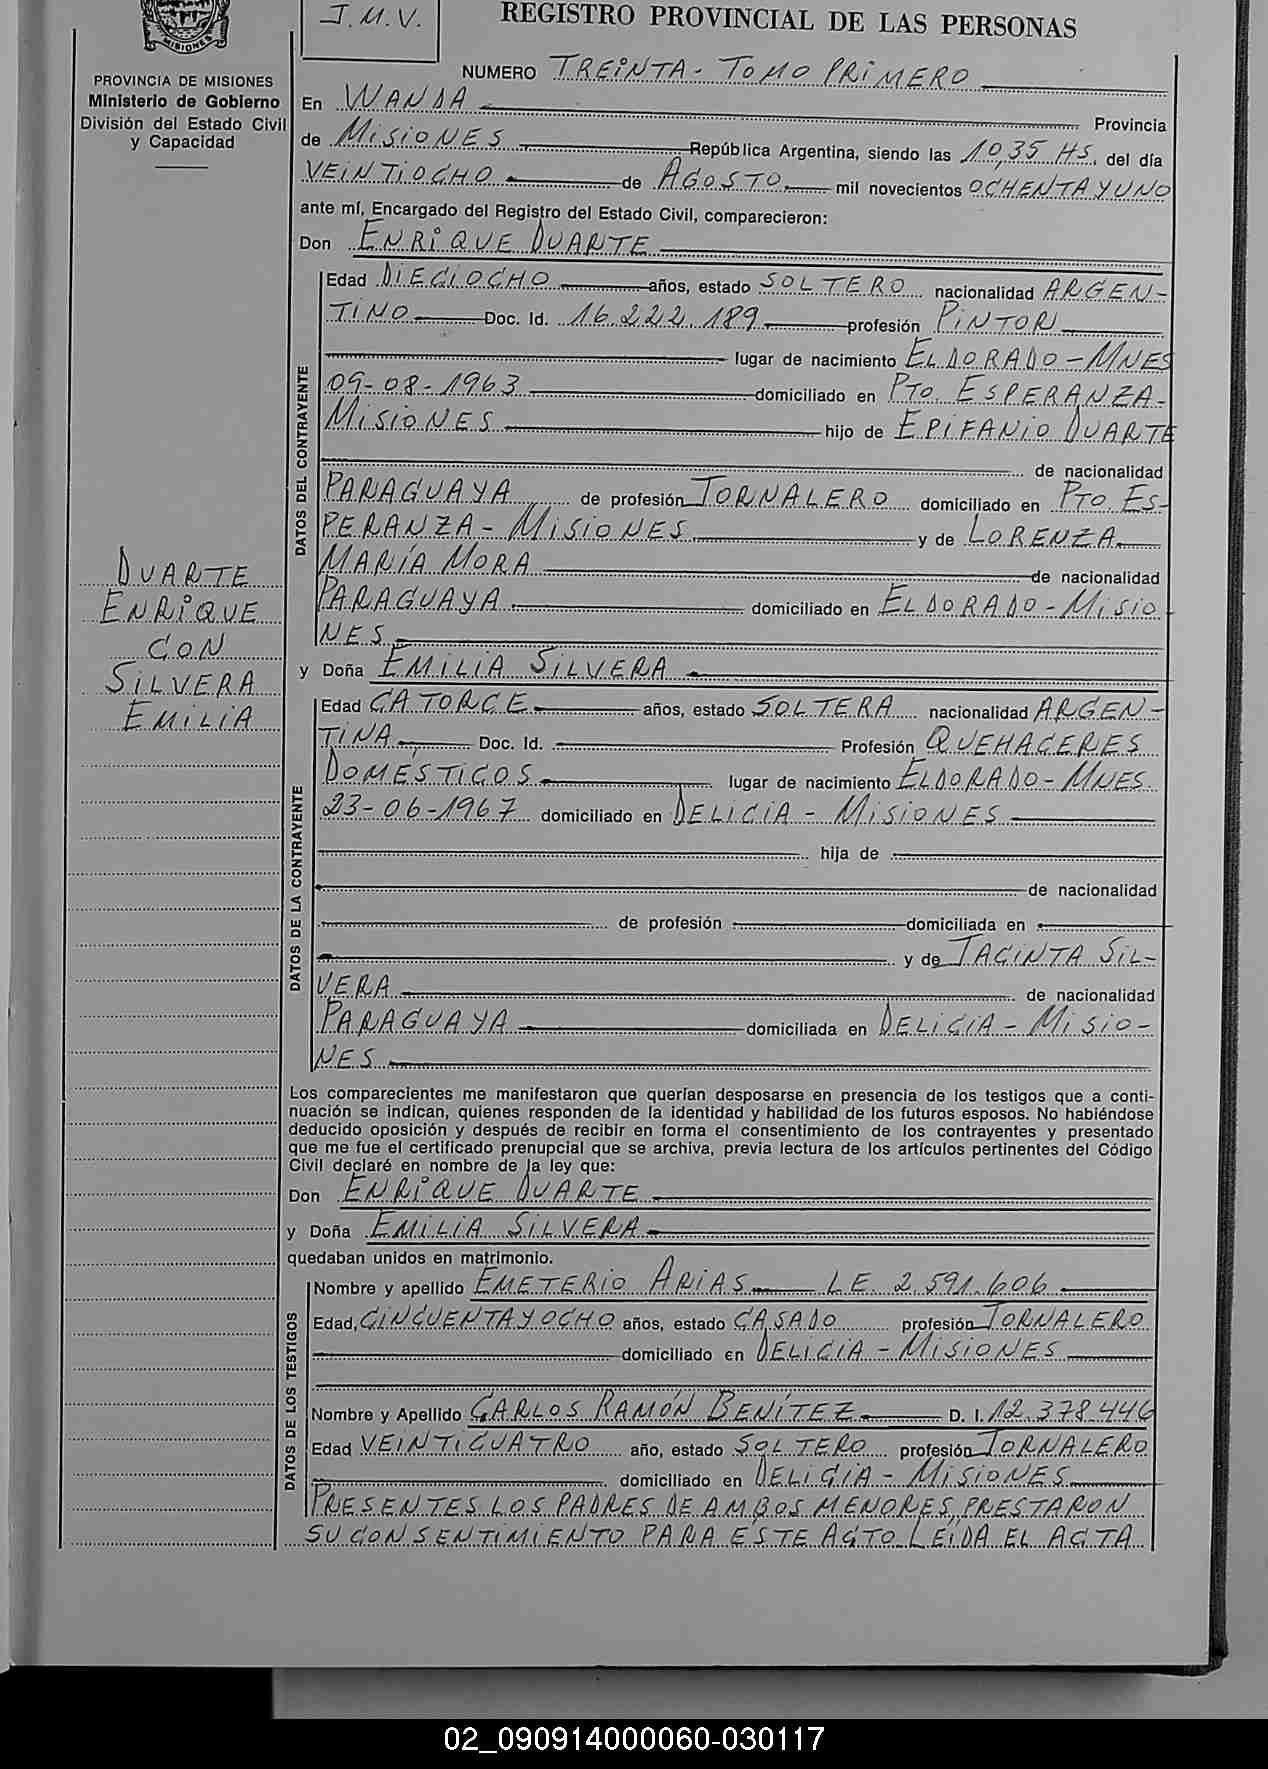 MISIONES
PROVINCIA DE MISIONES
Ministerio de Gobierno
División del Estado Civil
y Capacidad
DUARTE
ENRIQUE
CON
SILVERA
EMILIA
J.M.V.
REGISTRO PROVINCIAL DE LAS PERSONAS
NUMERO TREINTA - TOMO PRIMERO
En WANDA Provincia
de MISIONES República Argentina, siendo las 10,35 HS. del día
VEINTIOCHO de AGOSTO mil novecientos OCHENTA Y UNO
ante mí, Encargado del Registro del Estado Civil, comparecieron:
Don ENRIQUE DUARTE
DATOS DEL CONTRAYENTE
Edad DIECIOCHO años, estado SOLTERO nacionalidad ARGEN-
TINO Doc. Id. 16.222.189 profesión PINTOR
lugar de nacimiento ELDORADO - MNES
09-08-1963 domiciliado en PTO ESPERANZA-
MISIONES hijo de EPIFANIO DUARTE
de nacionalidad
PARAGUAYA de profesión JORNALERO domiciliado en PTO ES-
PERANZA - MISIONES y de LORENZA
MARÍA MORA de nacionalidad
PARAGUAYA domiciliado en ELDORADO - MISIO
NES
y Doña EMILIA SILVERA
DATOS DE LA CONTRAYENTE
Edad CATORCE años, estado SOLTERA nacionalidad ARGEN-
TINA Doc. Id. Profesión QUEHACERES
DOMÉSTICOS lugar de nacimiento ELDORADO - MNES
23-06-1967 domiciliado en DELICIA - MISIONES
hija de
de nacionalidad
de profesión domiciliada en
y de JACINTA SIL-
VERA de nacionalidad
PARAGUAYA domiciliada en DELICIA - MISIO-
NES
Los comparecientes me manifestaron que querían desposarse en presencia de los testigos que a conti-
nuación se indican, quienes responden de la identidad y habilidad de los futuros esposos. No habiéndose
deducido oposición y después de recibir en forma el consentimiento de los contrayentes y presentado
que me fue el certificado prenupcial que se archiva, previa lectura de los artículos pertinentes del Código
Civil declaré en nombre de la ley que:
Don ENRIQUE DUARTE
y Doña EMILIA SILVERA
quedaban unidos en matrimonio.
DATOS DE LOS TESTIGOS
Nombre y apellido EMETERIO ARIAS L E. 2.591.606
Edad, CINCUENTA Y OCHO años, estado CASADO profesión JORNALERO
domiciliado en DELICIA - MISIONES
Nombre y Apellido CARLOS RAMÓN BENÍTEZ D. I. 12.378.446
Edad VEINTICUATRO año, estado SOLTERO profesión JORNALERO
domiciliado en DELICIA - MISIONES
PRESENTES LOS PADRES DE AMBOS MENORES, PRESTARON
SU CONSENTIMIENTO PARA ESTE ACTO. LEÍDA EL ACTA
02_090914000060-030117